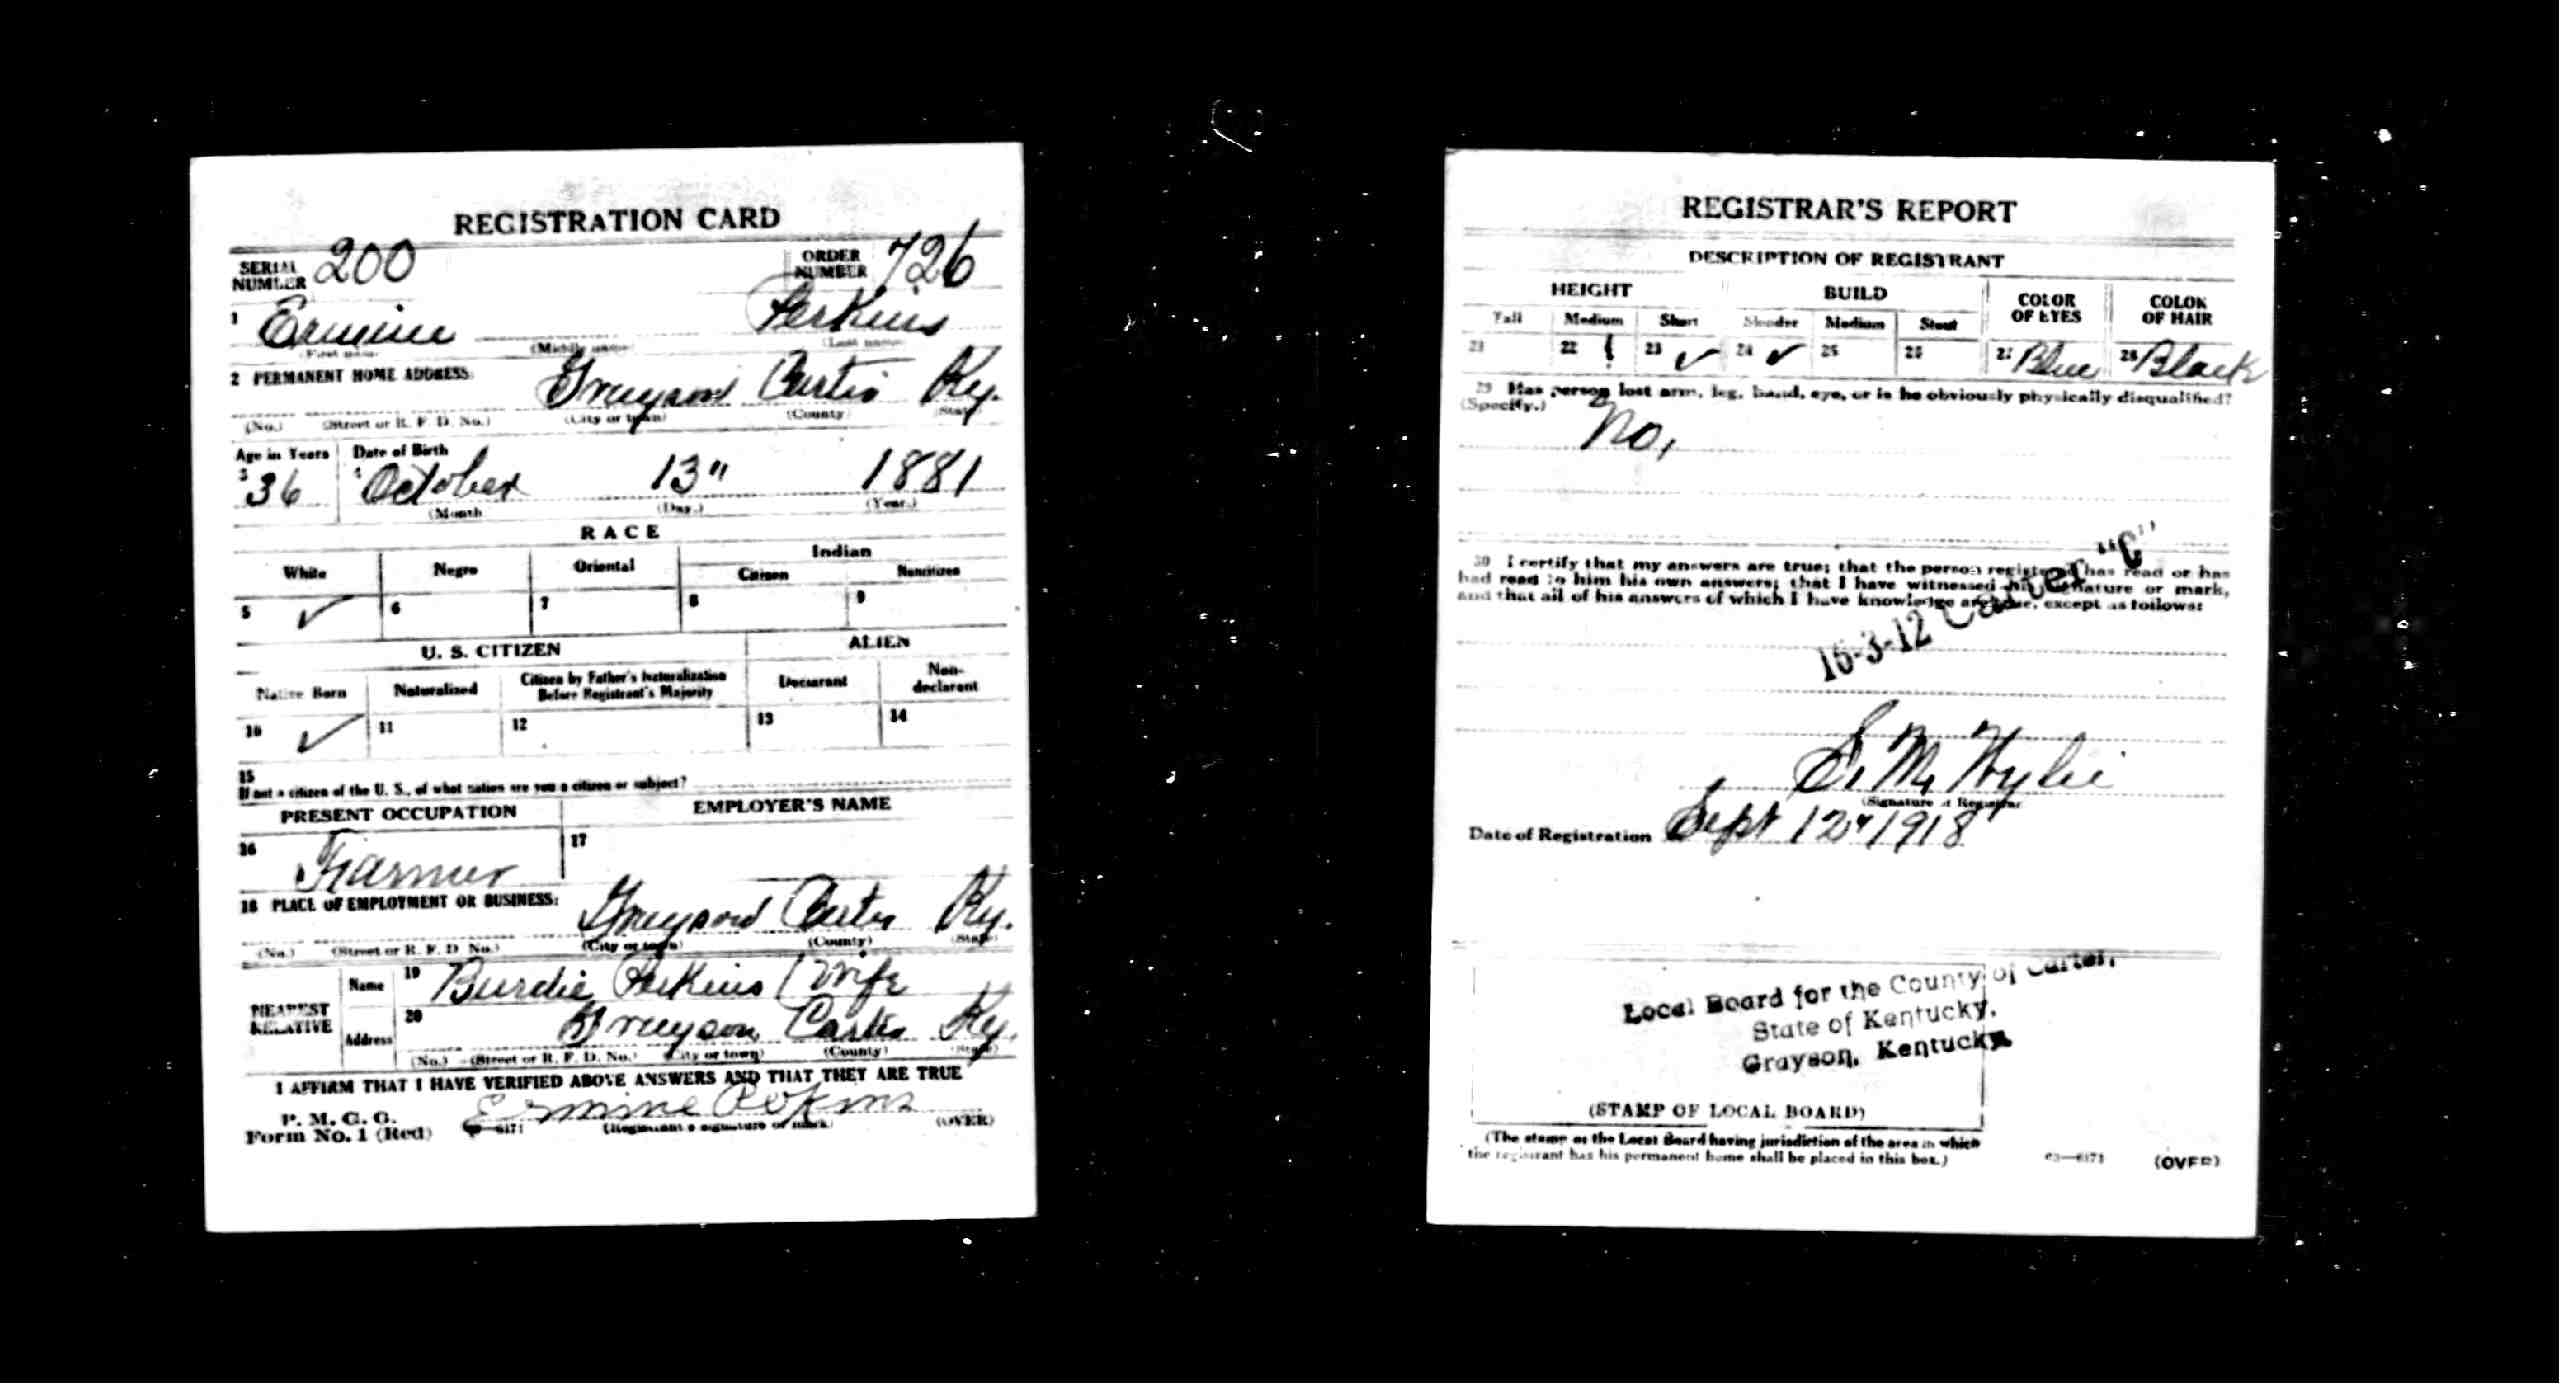 REGISTRATION CARD
SERIAL NUMBER 200 ORDER NUMBER 726
1 Ermine Perkins
(First name) (Middle name) (Last name)
2 PERMANENT HOME ADDRESS: Grayson Carter Ky.
(No.) (Street or R. F. D. No.) (City or town) (County) (State)
Age in Years Date of Birth
3 36 4 October 13" 1881
(Month) (Day.) (Year.)
RACE
White Negro Oriental Indian
Citizen Noncitizen
5 ✓ 6 7 8 9
U. S. CITIZEN ALIEN
Native Born Naturalized Citizen by Father's Naturalization Before Registrant's Majority Declarant Non-declarant
10 ✓ 11 12 13 14
15
If not a citizen of the U. S., of what nation are you a citizen or subject?
PRESENT OCCUPATION EMPLOYER'S NAME
16 Farmer 17
18 PLACE OF EMPLOYMENT OR BUSINESS: Grayson Carter Ky.
(No.) (Street or R. F. D. No.) (City or town) (County) (State)
NEAREST RELATIVE Name 19 Burdie Perkins (Wife
Address 20 Grayson Carter Ky.
(No.) (Street or R. F. D. No.) (City or town) (County) (State)
I AFFIRM THAT I HAVE VERIFIED ABOVE ANSWERS AND THAT THEY ARE TRUE
P. M. G. O.
Form No. 1 (Red) Ermine
(Registrant's signature or mark) (OVER)
REGISTRAR'S REPORT
DESCRIPTION OF REGISTRANT
HEIGHT BUILD COLOR OF EYES COLOR OF HAIR
Tall Medium Short Slender Medium Stout
21 22 23 ✓ 24 ✓ 25 26 27 Blue 28 Black
29 Has person lost arm, leg, hand, eye, or is he obviously physically disqualified?
(Specify.) No,
30 I certify that my answers are true; that the person registered has read or has
had read to him his own answers; that I have witnessed his signature or mark,
and that all of his answers of which I have knowledge are true, except as follows:
16-3-12 Carter "C"
S. M. Wylie
(Signature of Registrar)
Date of Registration Sept 12" 1918
Local Board for the County of Carter,
State of Kentucky,
Grayson, Kentucky.
(STAMP OF LOCAL BOARD)
(The stamp of the Local Board having jurisdiction of the area in which
the registrant has his permanent home shall be placed in this box.)
63—6171 (OVER)